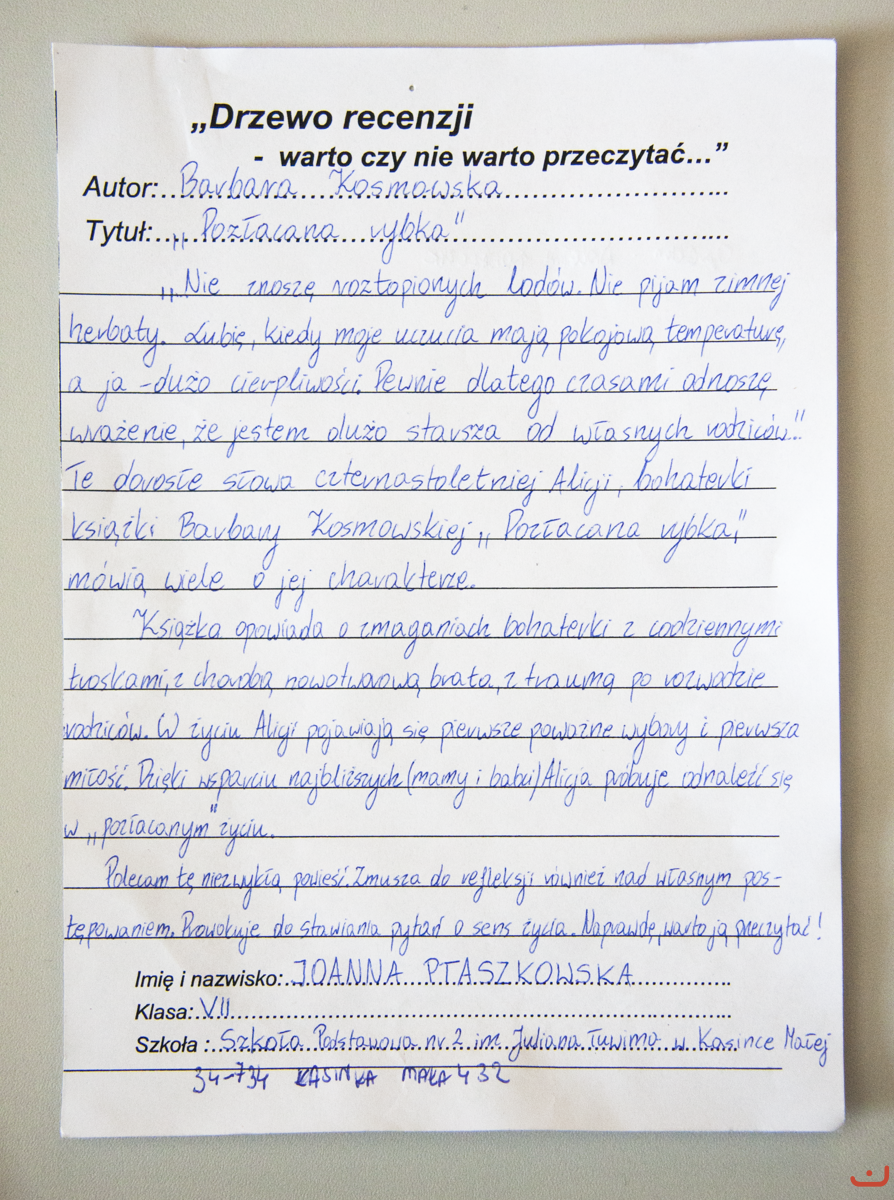 „Drzewo recenzji
- warto czy nie warto przeczytać…”
Autor: Barbara Kosmowska
Tytuł: „Pozłacana rybka"
„Nie znoszę roztopionych lodów. Nie pijam zimnej
herbaty. Lubię, kiedy moje uczucia mają pokojową temperaturę,
a ja - dużo cierpliwości. Pewnie dlatego czasami odnoszę
wrażenie, że jestem dużo starsza od własnych rodziców..."
Te dorosłe słowa czternastoletniej Alicji, bohaterki
książki Barbary Kosmowskiej „Pozłacana rybka",
mówią wiele o jej charakterze.
Książka opowiada o zmaganiach bohaterki z codziennymi
troskami, z chorobą nowotworową brata, z traumą po rozwodzie
rodziców. W życiu Alicji pojawiają się pierwsze poważne wybory i pierwsza
miłość. Dzięki wsparciu najbliższych (mamy i babci) Alicja próbuje odnaleźć się
w „pozłacanym" życiu.
Polecam tę niezwykłą powieść. Zmusza do refleksji również nad własnym pos-
tępowaniem. Prowokuje do stawiania pytań o sens życia. Naprawdę, warto ją przeczytać!
Imię i nazwisko: JOANNA PTASZKOWSKA
Klasa: VII
Szkoła : Szkoła Podstawowa nr 2 im. Juliana Tuwima w Kasince Małej
34-734 KASINKA MAŁA 432